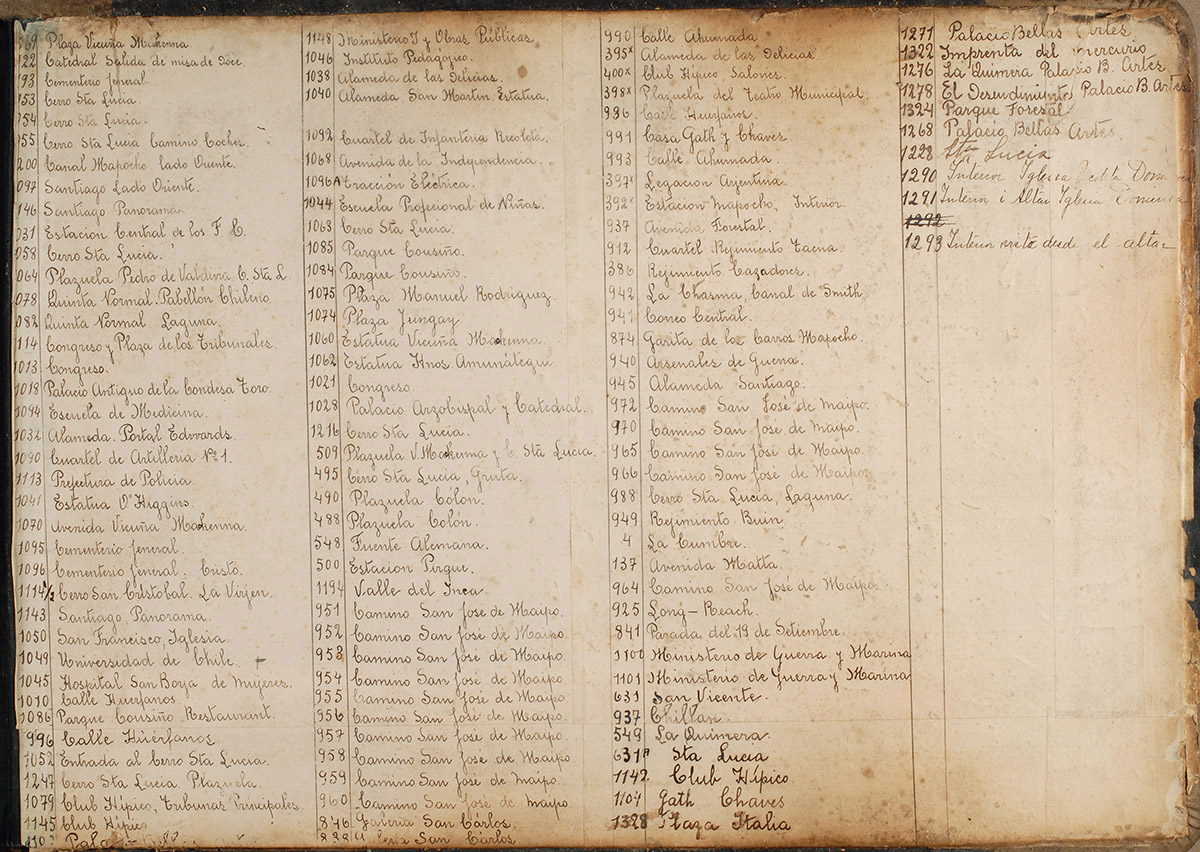 69 Plaza Vicuña Mackenna
22 Catedral Salida de misa de doce.
93 Cementerio Jeneral.
53 Cerro Sta Lucia.
54 Cerro Sta Lucia.
55 Cerro Sta Lucia Camino Coches.
200 Canal Mapocho lado Oriente.
097 Santiago Lado Oriente.
146 Santiago Panorama.
031 Estacion Central de los F. C.
058 Cerro Sta Lucia.
064 Plazuela Pedro de Valdivia C. Sta L.
078 Quinta Normal. Pabellón Chileno
082 Quinta Normal Laguna.
114 Congreso y Plaza de los Tribunales.
1013 Congreso.
1018 Palacio Antiguo de la Condesa Toro.
1094 Escuela de Medicina.
1032 Alameda. Portal Edwards.
1090 Cuartel de Artilleria Nº 1.
1113 Prefectura de Policia.
1041 Estatua O'Higgins.
1070 Avenida Vicuña Mackenna.
1095 Cementerio Jeneral.
1096 Cementerio Jeneral. Cristo.
1114 1/2 Cerro San Cristobal. La Virjen.
1143 Santiago Panorama.
1050 San Francisco, Iglesia.
1049 Universidad de Chile.
1045 Hospital San Borja de Mujeres.
1010 Calle Huerfanos.
1086 Parque Cousiño Restaurant.
996 Calle Huérfanos
1052 Entrada al Cerro Sta Lucia.
1247 Cerro Sta Lucia Plazuela.
1079 Club Hípico, Tribunas Principales
1145 Club Hípico
110
1148 Ministerio I y Obras Públicas
1046 Instituto Pedagójico.
1038 Alameda de las Delicias.
1040 Alameda San Martin, Estatua.
1092 Cuartel de Infanteria Recoleta.
1068 Avenida de la Independencia.
1096A Tracción Eléctrica.
1044 Escuela Profecional de Niñas.
1063 Cerro Sta Lucia.
1085 Parque Cousiño.
1084 Parque Cousiño.
1075 Plaza Manuel Rodriguez
1074 Plaza Jungay
1060 Estatua Vicuña Mackenna.
1062 Estatua Hnos Amunátegui
1021 Congreso.
1028 Palacio Arzobispal y Catedral.
1216 Cerro Sta Lucia.
509 Plazuela V. Mackenna y C. Sta Lucia.
495 Cerro Sta Lucia, Gruta.
490 Plazuela Cólon.
488 Plazuela Colón.
548 Fuente Alemana.
500 Estacion Pirque.
1194 Valle del Inca.
951 Camino San José de Maipo.
952 Camino San José de Maipo.
953 Camino San José de Maipo.
954 Camino San José de Maipo.
955 Camino San José de Maipo.
956 Camino San José de Maipo.
957 Camino San José de Maipo.
958 Camino San José de Maipo.
959 Camino San José de Maipo.
960 Camino San José de Maipo.
846 Galeria San Carlos.
838 San Carlos
990 Calle Ahumada
395x Alameda de las Delicias
400x Club Hípico, Salones.
398x Plazuela del Teatro Municipal.
936 Calle Huerfanos.
991 Casa Gath y Chaves.
993 Calle Ahumada.
397x Legacion Arjentina.
392x Estacion Mapocho, Interior.
937 Avenida Forestal.
912 Cuartel Rejimiento Tacna.
386 Rejimiento Cazadores.
942 La Chasma, Canal de Smith
941 Correo Central.
874 Garita de los Carros Mapocho.
940 Arsenales de Guerra.
945 Alameda Santiago.
972 Camino San José de Maipo.
970 Camino San José de Maipo.
965 Camino San José de Maipo.
966 Camino San José de Maipo.
988 Cerro Sta Lucia, Laguna.
949 Rejimiento Buin.
4 La Cumbre.
137 Avenida Matta.
964 Camino San José de Maipo.
925 Long-Reach.
841 Parada del 19 de Setiembre.
1100 Ministerio de Guerra y Marina
1101 Ministerio de Guerra y Marina
631 San Vicente.
937 Chillan
549 La Quimera.
631A Sta Lucia
1142 Club Hípico.
1104 Gath Chaves
1328 Plaza Italia
1271 Palacio Bellas Artes.
1322 Imprenta del Mercurio
1276 La Quimera Palacio B. Artes
1278 El Desendimiento Palacio B. Artes
1324 Parque Foresal
1268 Palacio Bellas Artes.
1228 Sta Lucia
1290 Interior Iglesia
1291 Interior i Altar Iglesia
1292
1293 Interior desde el altar